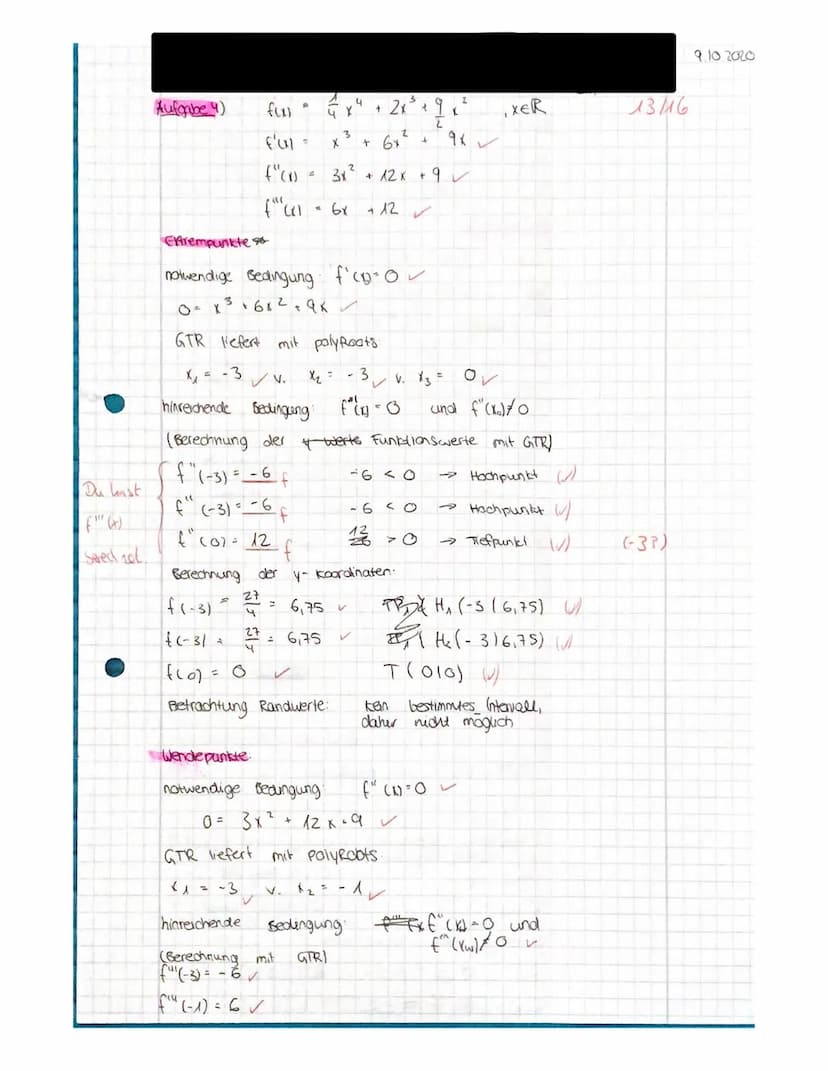 9.10.2020
Aufgabe 4) f(x) = 1/4 x⁴ + 2x³ + 9/2 x² , x∈ℝ 13/16
f'(x) = x³ + 6x² + 9x ✓
f''(x) = 3x² + 12x + 9 ✓
f'''(x) = 6x + 12 ✓
Extrempunkte
notwendige Bedingung: f'(x)=0 ✓
0 = x³ + 6x² + 9x ✓
GTR liefert mit polyRoots
x₁ = -3 ✓ v. x₂ = -3 ✓ v. x₃ = 0 ✓
hinreichende Bedingung: f'(x) = 0 und f''(x₀)≠0
(Berechnung der y-Werte Funktionswerte mit GTR)
f''(-3) = -6 f -6 < 0 → Hochpunkt (✓)
Du hast
f''(-3) = -6 f -6 < 0 → Hochpunkt (✓)
f'''(x)
f''(0) = 12 f 12 > 0 → Tiefpunkt (✓) (-3P)
Berechnung der y-Koordinaten:
f(-3) = 27/4 = 6,75 ✓ H₁(-3|6,75) (✓)
f(-3) = 27/4 = 6,75 ✓ H₂(-3|6,75) (✓)
f(0) = 0 ✓ T(0|0) (✓)
Betrachtung Randwerte: kein bestimmtes Intervall,
daher nicht möglich
Wendepunkte
notwendige Bedingung: f''(x)=0 ✓
0 = 3x² + 12x + 9 ✓
GTR liefert mit PolyRoots
x₁ = -3 ✓ v. x₂ = -1 ✓
hinreichende Bedingung: f''(x)=0 und
f'''(xw)≠0 ✓
(Berechnung mit GTR)
f'''(-3) = -6 ✓
f'''(-1) = 6 ✓